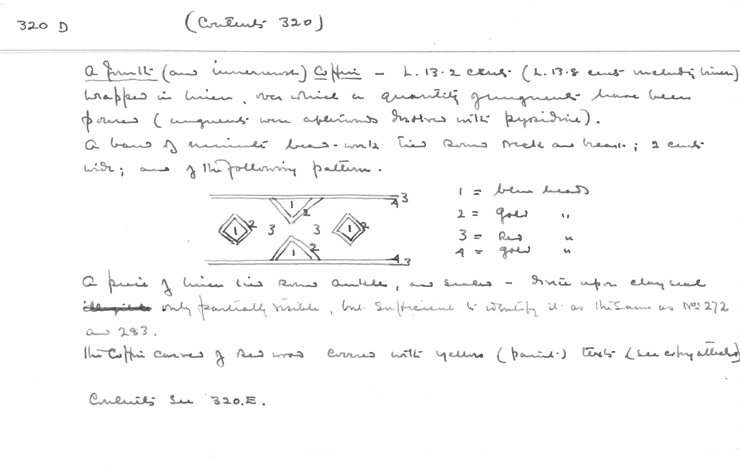 320 D (Contents 320)
A fourth (and innermost) Coffin - L. 13.2 cents (L. 13.8 cent including linen)
wrapped in linen, over which a quantity of unguents have been
poured (unguents were afterwards dissolved with pyridine).
A band of minute bead-work tied round neck and breast; 2 cents
wide; and of the following pattern.
3
4
1
2
1 2 3 3 1 2
1 2
4 3
1 = blue beads
2 = gold "
3 = Red "
4 = gold "
A piece of linen tied round ankles, and sealed - device upon clay seal
only partially visible, but sufficient to identify it as the same as Nos 272
and 283.
The Coffin carved of red wood covered with yellow (paint.) texts (see copy attached)
Contents see 320.E.